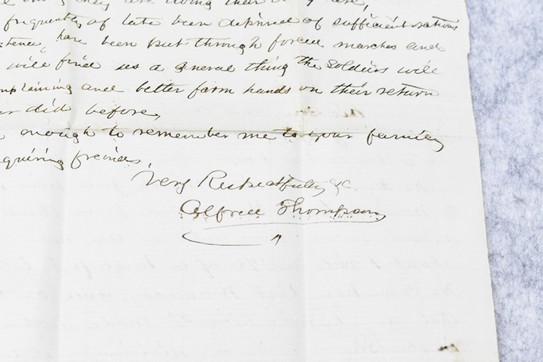 they are doing their
frequently of late been deprived of sufficient rations
have been put through forced marches and
will find as a general thing the soldiers will
complaining and better farm hands on their return
did before,
enough to remember me to your family
quiring friends,
Very Respectfully &c.
Alfred Thompson